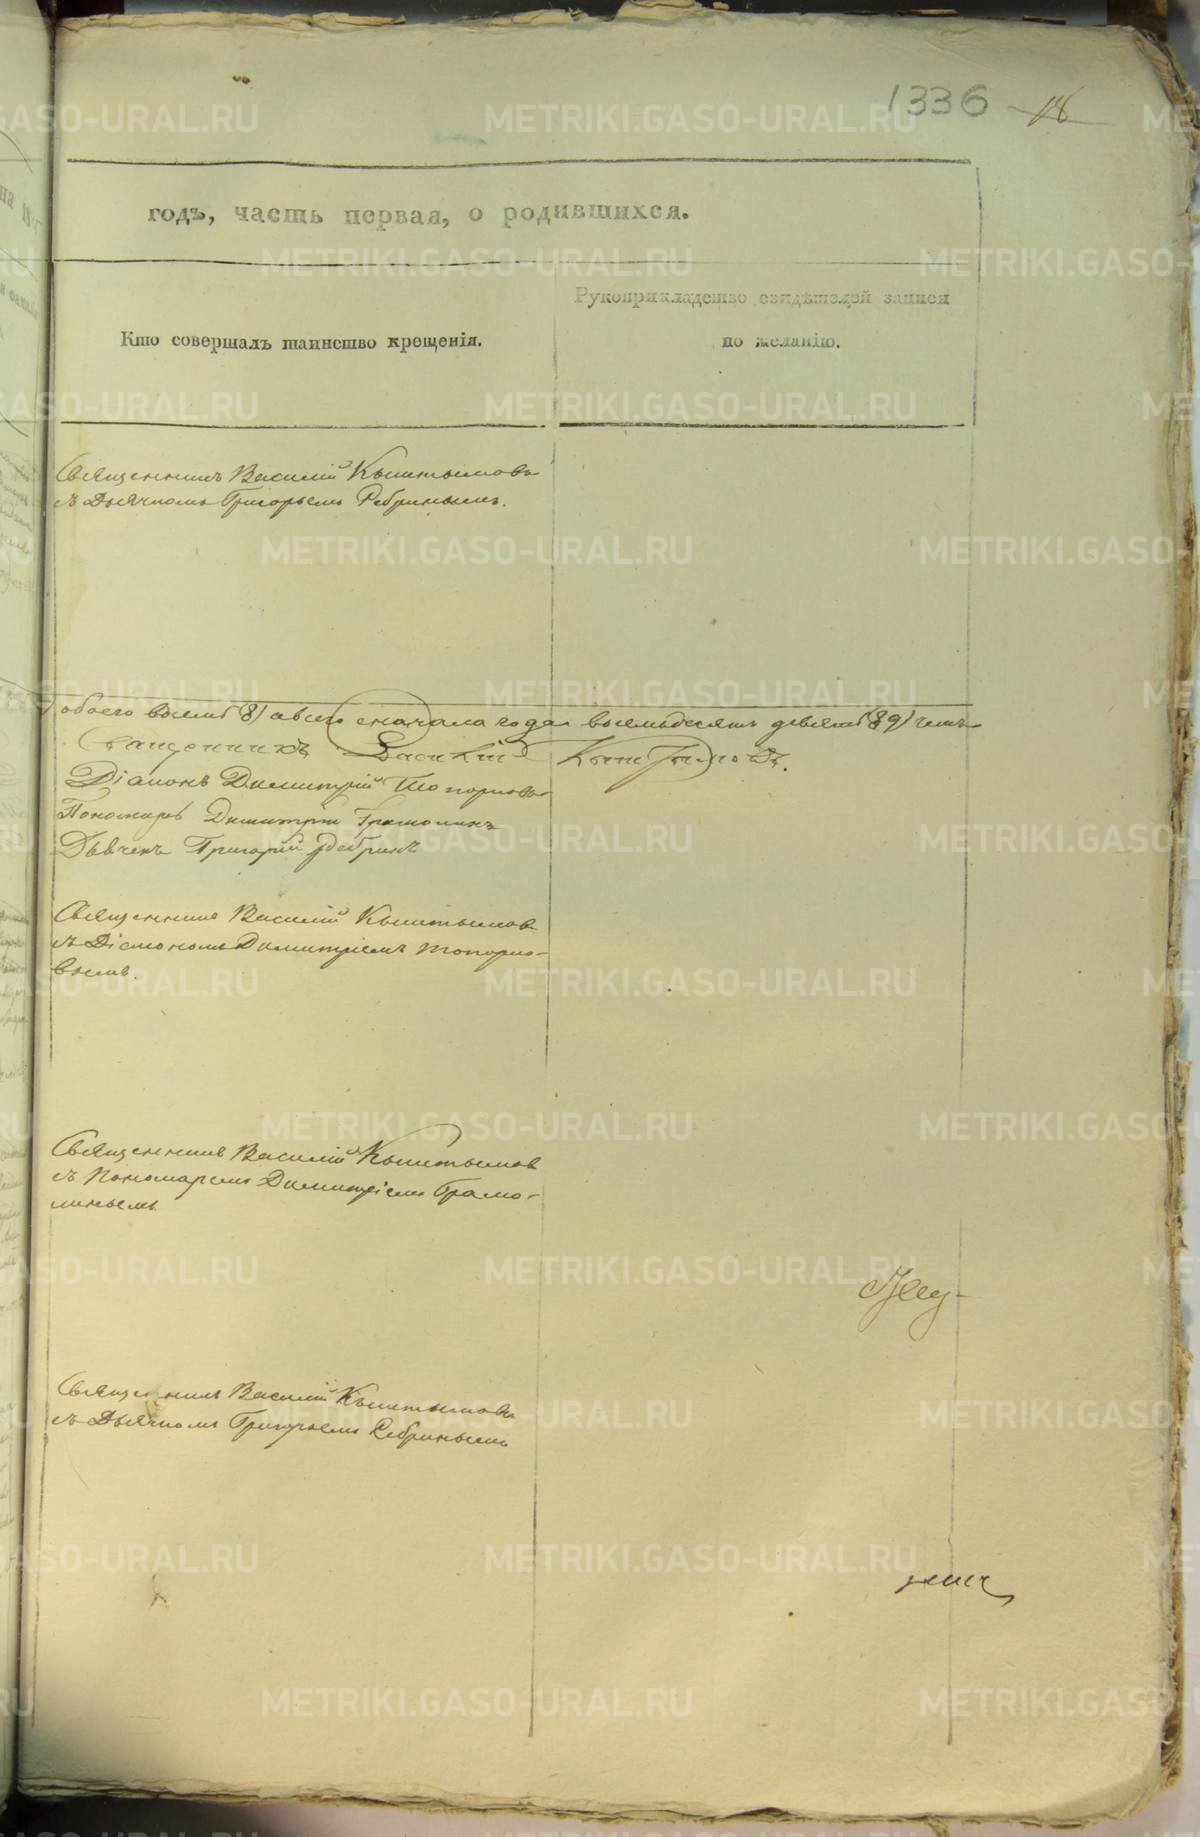 1336 18
годъ, часть первая, о родившихся.
Кто совершалъ таинство крещенія.
Рукоприкладство свидѣтелей записи
по желанію.
Священникъ Василій Кыштымовъ
съ Дьячкомъ Григорьемъ Ребринымъ.
обоего восемь (8) а всего сначала года восемьдесятъ девять (89) челъ
Священникъ Василій Кыштымовъ.
Діаконъ Димитрій Топорковъ
Пономарь Димитрій Грамолинъ
Дьячекъ Григорій Ребринъ
Священникъ Василій Кыштымовъ
съ Діакономъ Димитріемъ Топорко-
вымъ.
Священникъ Василій Кыштымовъ
съ Пономаремъ Димитріемъ Грамо-
линымъ
Священникъ Василій Кыштымовъ
съ Дьячкомъ Григорьемъ Ребринымъ
METRIKI.GASO-URAL.RU